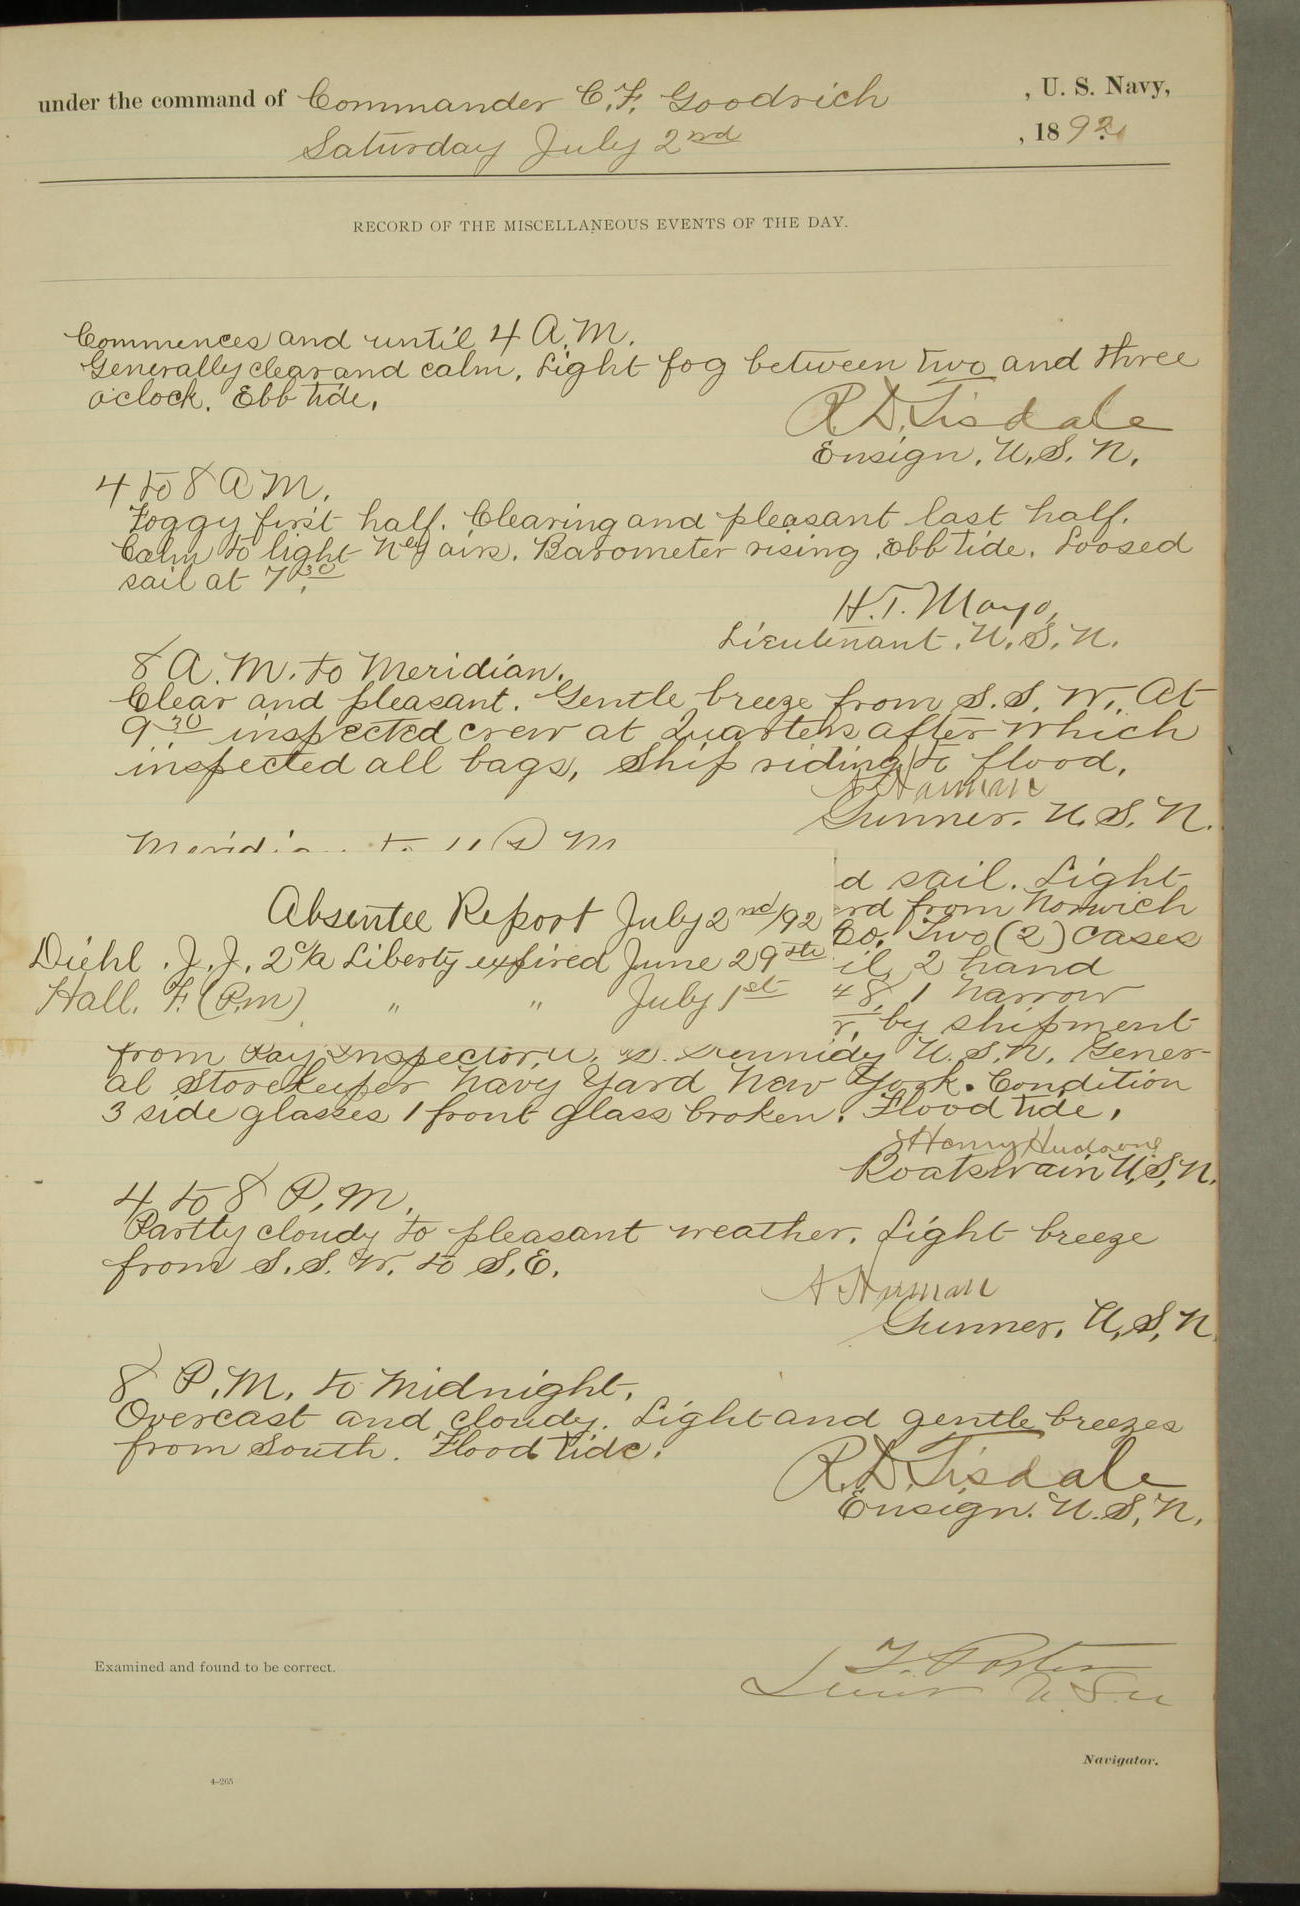 under the command of Commander C. F. Goodrich , U. S. Navy,
Saturday July 2nd , 1892.
RECORD OF THE MISCELLANEOUS EVENTS OF THE DAY.
Commences and until 4 A.M.
Generally clear and calm. Light fog between two and three
o'clock. Ebb tide.
R. D. Tisdale
Ensign. U. S. N.
4 to 8 A M.
Foggy first half. Clearing and pleasant last half.
Calm to light Nely airs. Barometer rising. Ebb tide. Loosed
sail at 7.30
H. T. Mayo,
Lieutenant. U. S. N.
8 A. M. to Meridian.
Clear and pleasant. Gentle breeze from S. S. W. At
9.30 inspected crew at Quarters after which
inspected all bags, Ship riding to flood.
Gunner. U. S. N.
Absentee Report July 2nd/92
Diehl. J. J. 2c/a Liberty expired June 29th
Hall. F. (P.m) " " July 1st
d sail. Light
rd from Norwich
Co. Two (2) cases
il, 2 hand
48, 1 narrow
r, by shipment
from Pay Inspector, U. S. N. Gener-
al Storekeeper Navy Yard New York. Condition
3 side glasses 1 front glass broken. Flood tide.
Boatswain U. S. N.
4 to 8 P. M.
Partly cloudy to pleasant weather. Light breeze
from S. S. W. to S. E.
Gunner. U. S. N
8 P. M. to Midnight.
Overcast and cloudy. Light and gentle breezes
from South. Flood tide.
R. D. Tisdale
Ensign. U. S. N.
Examined and found to be correct.
Navigator.
4-265